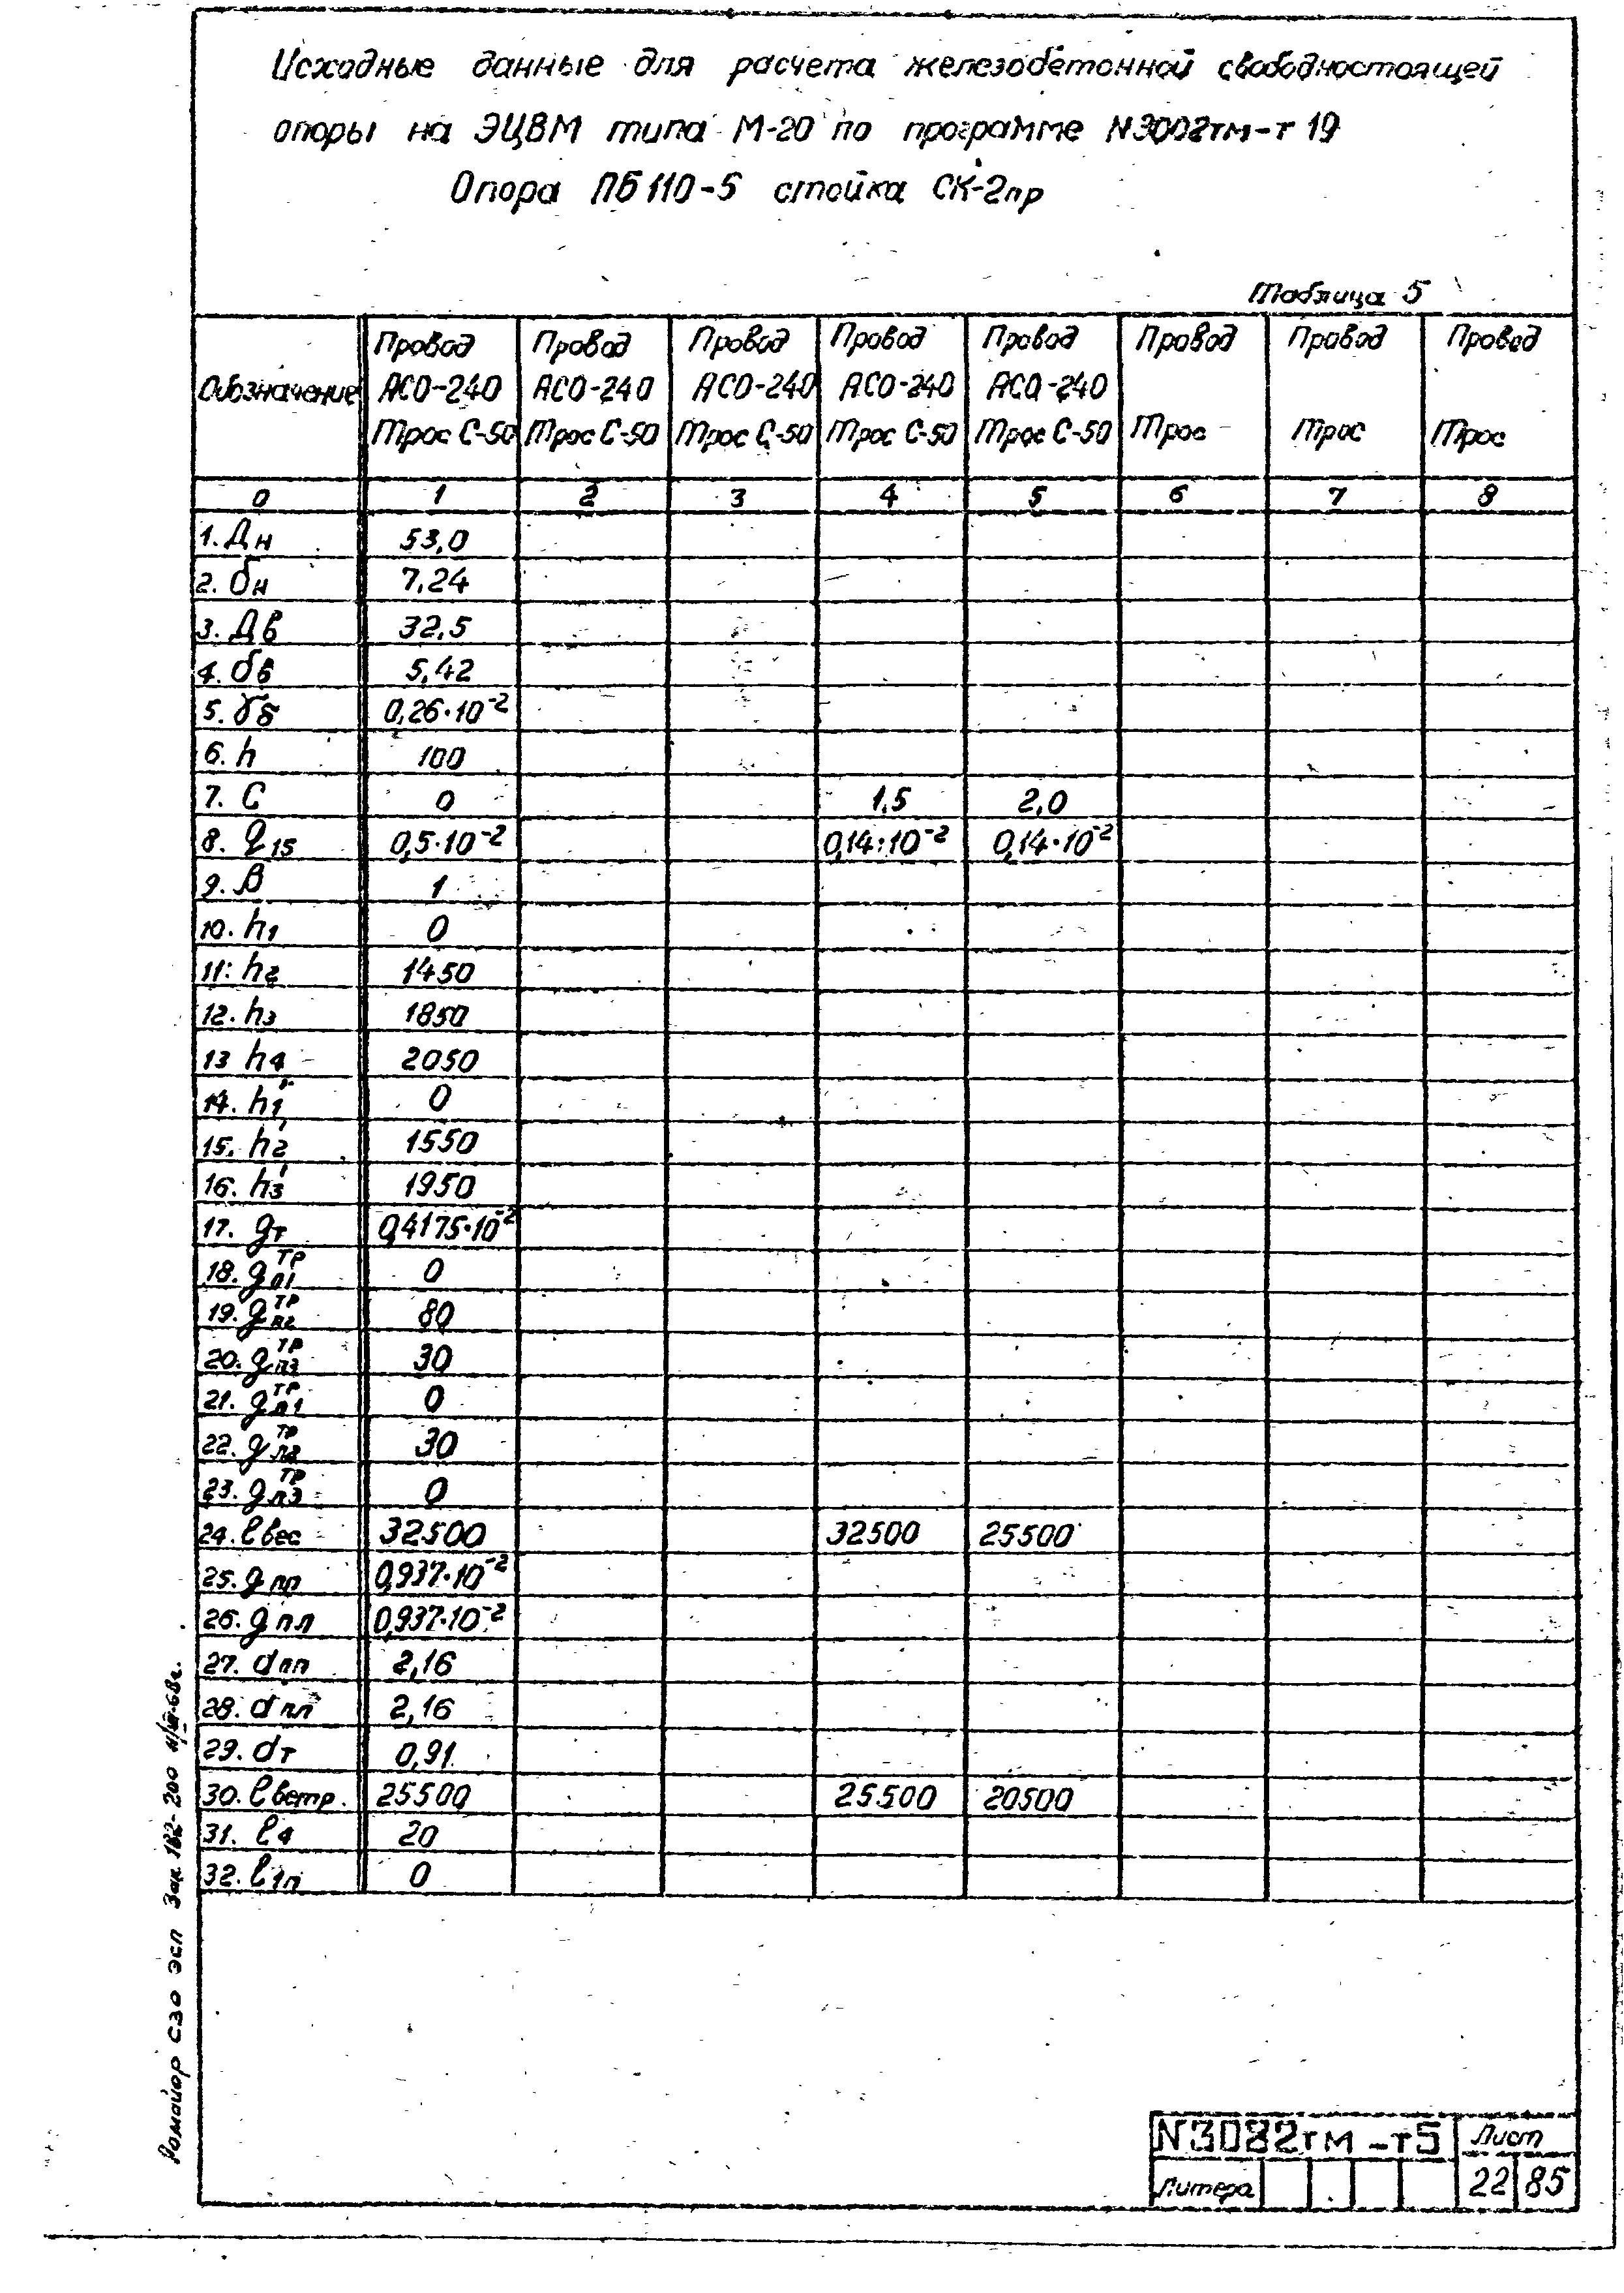 Исходные данные для расчета железобетонной свободностоящей
опоры на ЭЦВМ типа М-20 по программе N3002тм-т 19
Опора ПБ110-5 стойка СК-2пр
Таблица 5
Обозначение | Провод АСО-240 Трос С-50 | Провод АСО-240 Трос С-50 | Провод АСО-240 Трос С-50 | Провод АСО-240 Трос С-50 | Провод АСО-240 Трос С-50 | Провод Трос | Провод Трос | Провод Трос
0 1 2 3 4 5 6 7 8
1. Дн 53,0
2. δн 7,24
3. Дв 32,5
4. δв 5,42
5. γδ 0,26·10⁻²
6. h 100
7. С 0 1,5 2,0
8. Q15 0,5·10⁻² 0,14·10⁻² 0,14·10⁻²
9. В 1
10. h1 0
11. h2 1450
12. h3 1850
13 h4 2050
14. h1' 0
15. h2' 1550
16. h3' 1950
17. gт 0,4175·10⁻²
18. gп1ТР 0
19. gп2ТР 80
20. gп3ТР 30
21. gл1ТР 0
22. gл2ТР 30
23. gл3ТР 0
24. ℓвес 32500 32500 25500
25. gпп 0,937·10⁻²
26. gпл 0,937·10⁻²
27. dпп 2,16
28. dпл 2,16
29. dт 0,91
30. ℓветр. 25500 25500 20500
31. ℓ4 20
32. ℓ1п 0
Ромайор СЗО ЭСП Зак. 182-200 68г.
N3082тм-т5 Лист
Литера 22 85